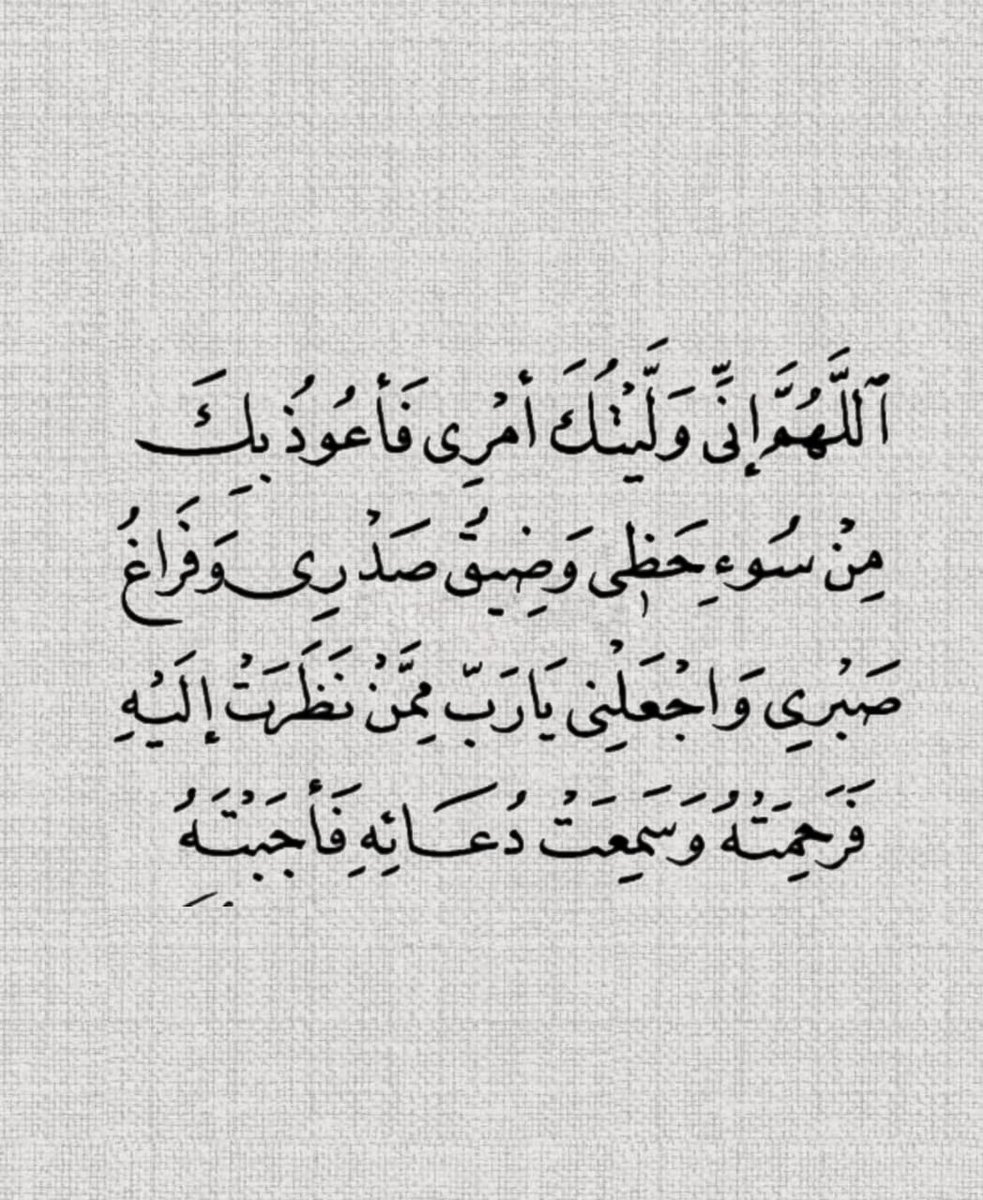 ٱللَّهُمَّ إِنِّي وَلَّيْتُكَ أَمْرِى فَأَعُوذُ بِكَ
مِنْ سُوءِ حَظِّى وَضِيقُ صَدْرِى وَفَرَاغُ
صَبْرِي وَاجْعَلْنِى يَارَبّ مِمَّنْ نَظَرَتْ إِلَيْهِ
فَرَحِمَتْهُ وَسَمِعَتْ دُعَائِهِ فَأَجَبْتَهُ